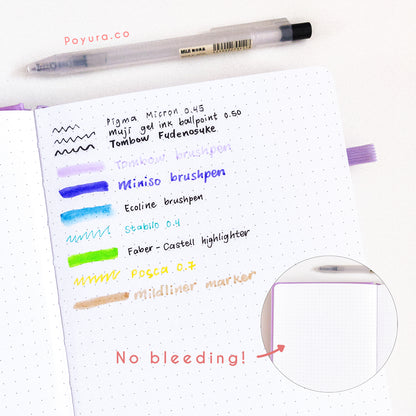 Poyura.co
MUJI 無印良品
Pigma Micron 0.45
muji gel ink ballpoint 0.50
Tombow Fudenosuke
Tombow brushpen
Miniso brushpen
Ecoline brushpen
Stabilo 0.4
Faber-Castell highlighter
Posca 0.7
mildliner marker
No bleeding!